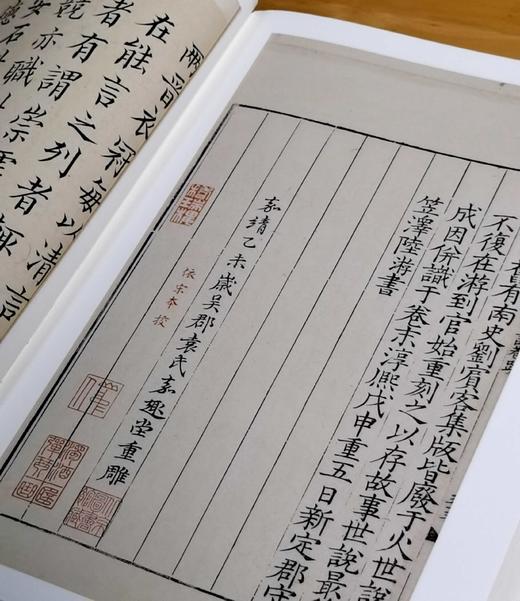 有南史劉賓客集版皆廢于火世說
不復在游到官始重刻之以存故事世說最
成因併識于卷末淳熙戊申重五日新定郡
笠澤陸游書
嘉靖乙未歲吳郡袁氏嘉趣堂重雕
依宋本校
兩晉衣冠每以清言
在能言之列者
者有謂崇
亦職